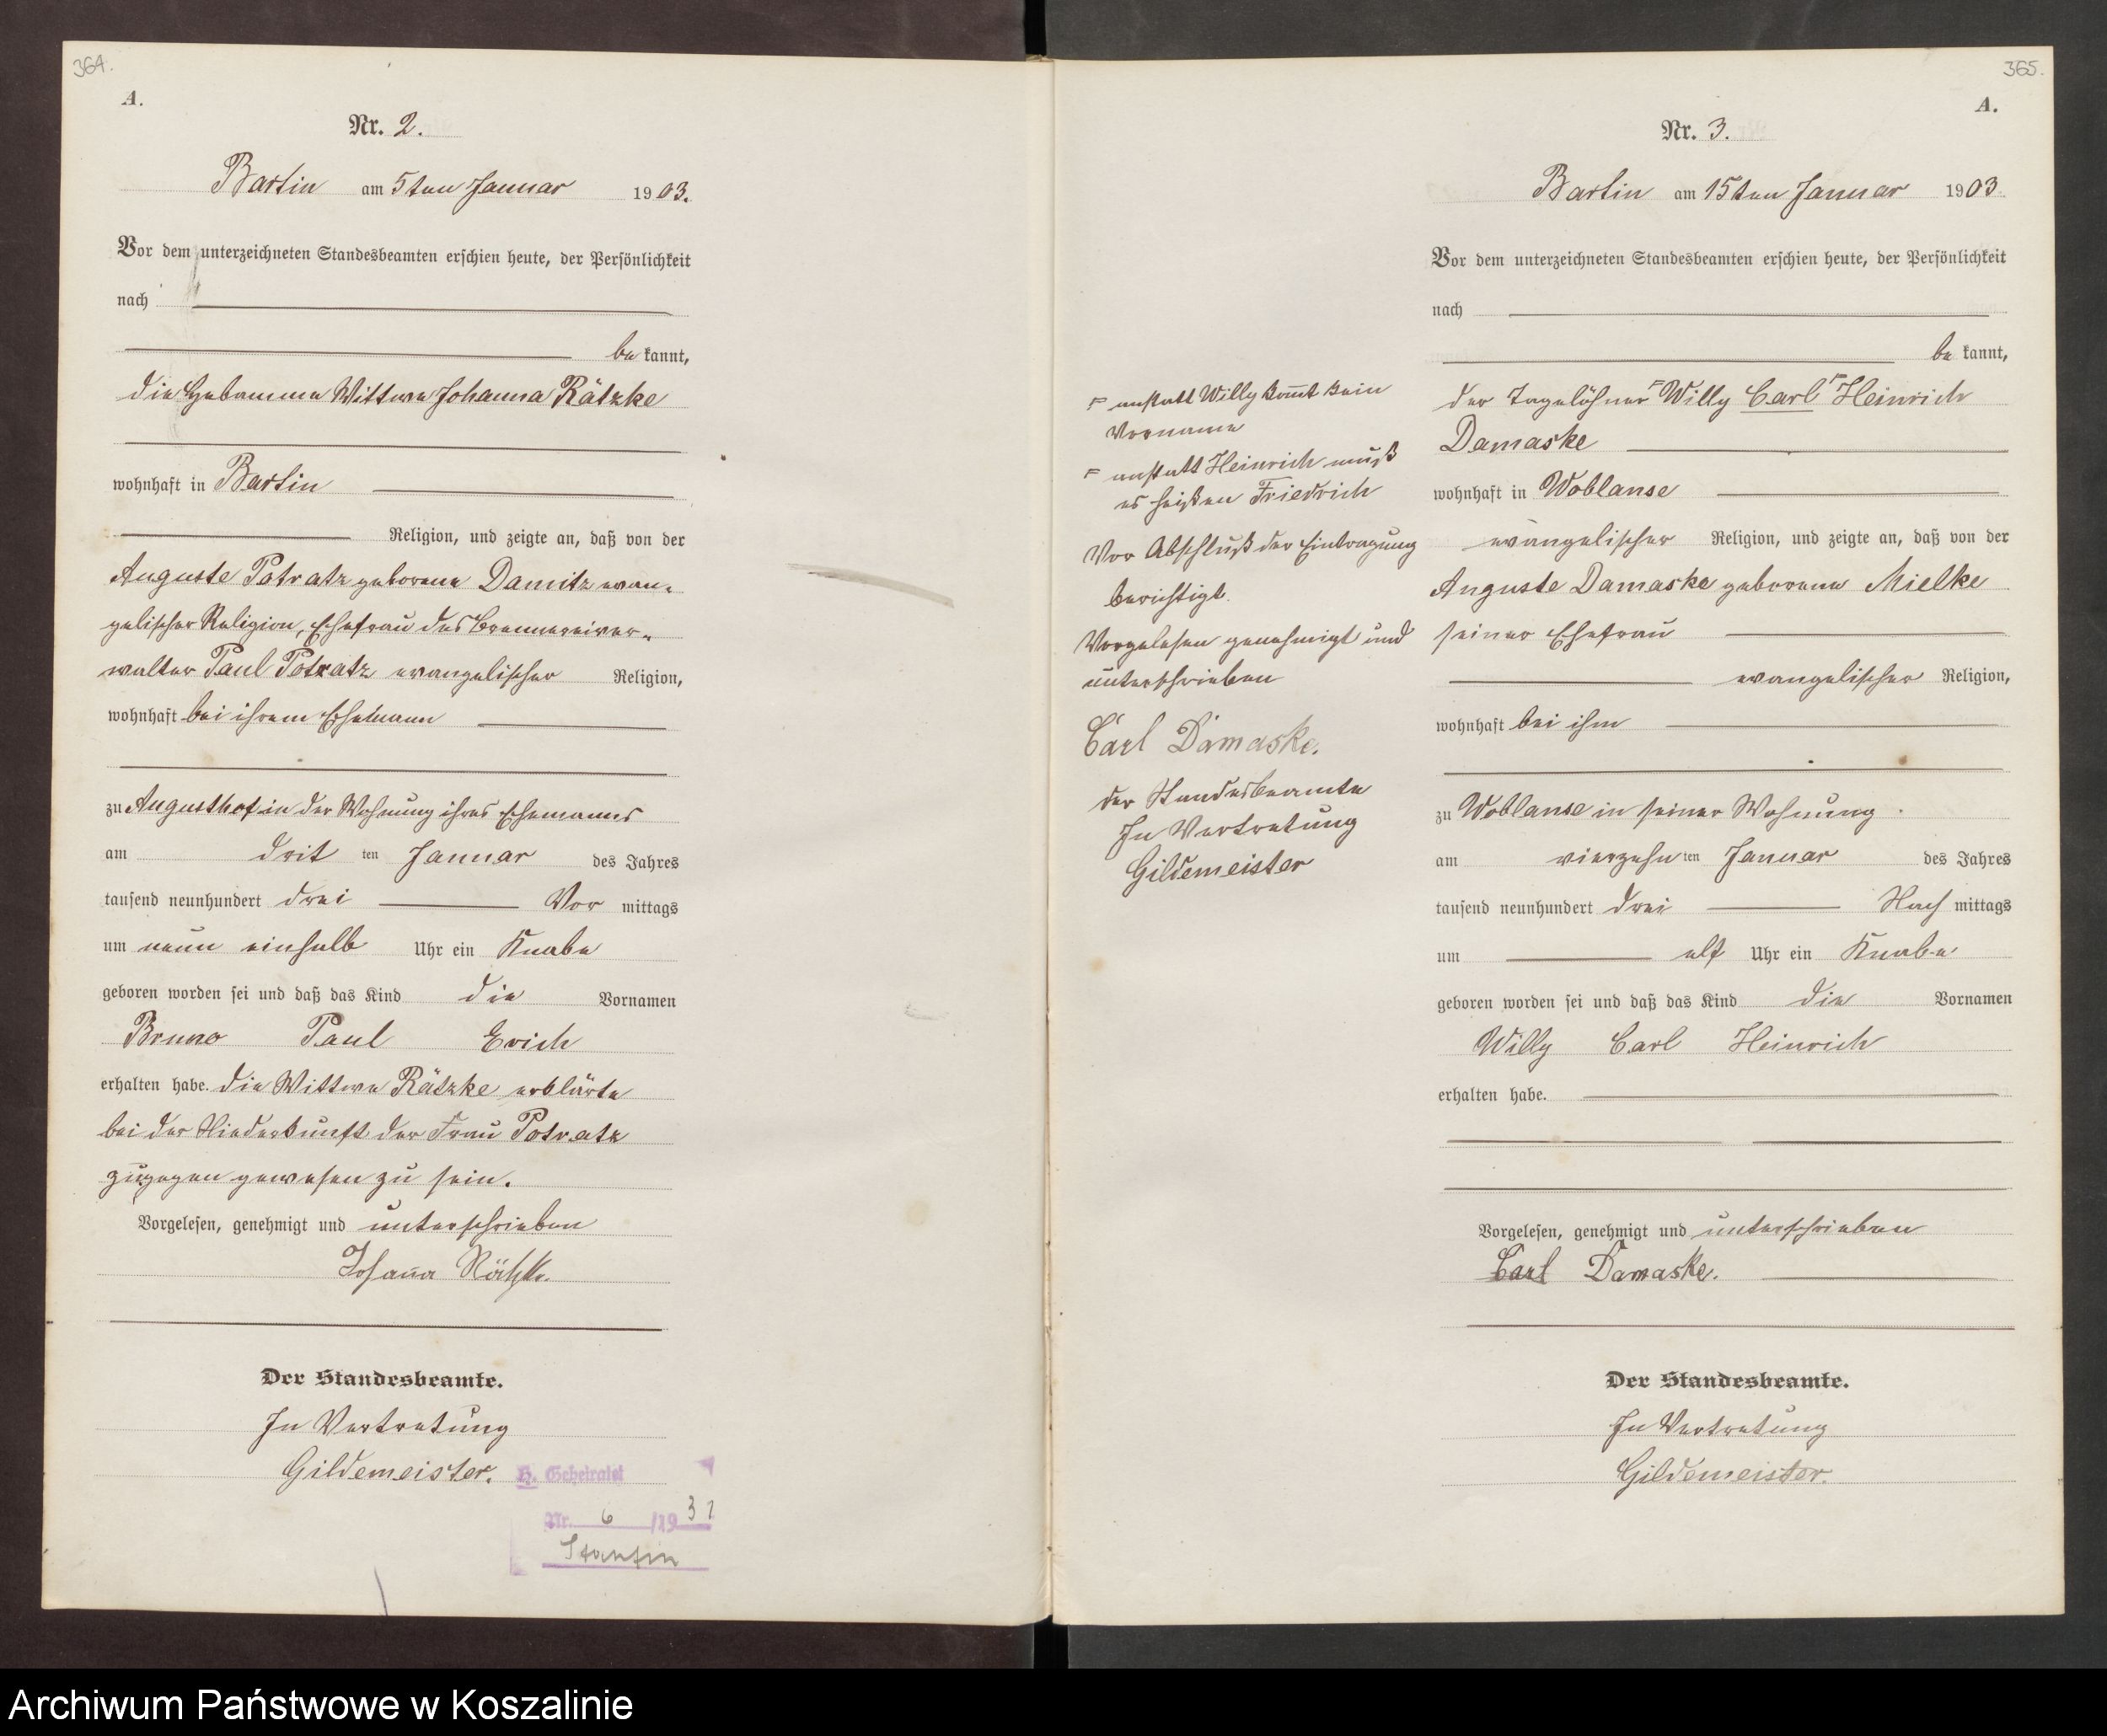 364.
A.
Nr. 2.
Bartin am 5ten Januar 1903.
Vor dem unterzeichneten Standesbeamten erschien heute, der Persönlichkeit
nach
be kannt,
die Hebamme Wittwe Johanna Rätzke
wohnhaft in Bartin
Religion, und zeigte an, daß von der
Auguste Potratz geborene Damitz evan-
gelischer Religion, Ehefrau des Brennereiver-
walter Paul Potratz evangelischer Religion,
wohnhaft bei ihrem Ehemann
zu Augusthof in der Wohnung ihres Ehemanns
am drit ten Januar des Jahres
tausend neunhundert drei Vor mittags
um neun einhalb Uhr ein Knabe
geboren worden sei und daß das Kind die Vornamen
Bruno Paul Erich
erhalten habe. die Wittwe Rätzke erklärte
bei der Niederkunft der Frau Potratz
zugegen gewesen zu sein.
Vorgelesen, genehmigt und unterschrieben
Johanna Rätzke.
Der Standesbeamte.
In Vertretung
Gildemeister.
H. Geheiratet
Nr. 6 /19 31
Stantin
365.
A.
Nr. 3.
Bartin am 15ten Januar 1903
Vor dem unterzeichneten Standesbeamten erschien heute, der Persönlichkeit
nach
be kannt,
der Tagelöhner Willy Carl Heinrich
Damaske
wohnhaft in Woblanse
evangelischer Religion, und zeigte an, daß von der
Auguste Damaske geborene Mielke
seiner Ehefrau
evangelischer Religion,
wohnhaft bei ihm
zu Woblanse in seiner Wohnung
am vierzehn ten Januar des Jahres
tausend neunhundert drei Nach mittags
um elf Uhr ein Knabe
geboren worden sei und daß das Kind die Vornamen
Willy Carl Heinrich
erhalten habe.
Vorgelesen, genehmigt und unterschrieben
Carl Damaske.
Der Standesbeamte.
In Vertretung
Gildemeister.
anstatt Willy kom̄t kein
Vorname
anstatt Heinrich muß
es heißen Friedrich
Vor Abschluß der Eintragung
berichtigt.
Vorgelesen genehmigt und
unterschrieben
Carl Damaske.
der Standesbeamte
In Vertretung
Gildemeister
Archiwum Państwowe w Koszalinie